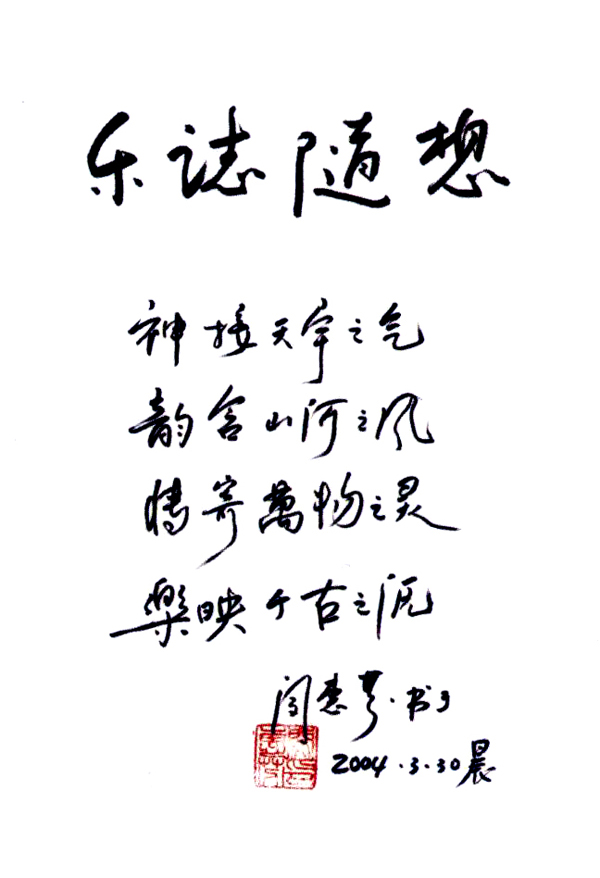 乐誌随想
神接天宇之气
韵含山河之风
情寄萬物之灵
樂映千古之
闫惠 书于
2004.3.30晨